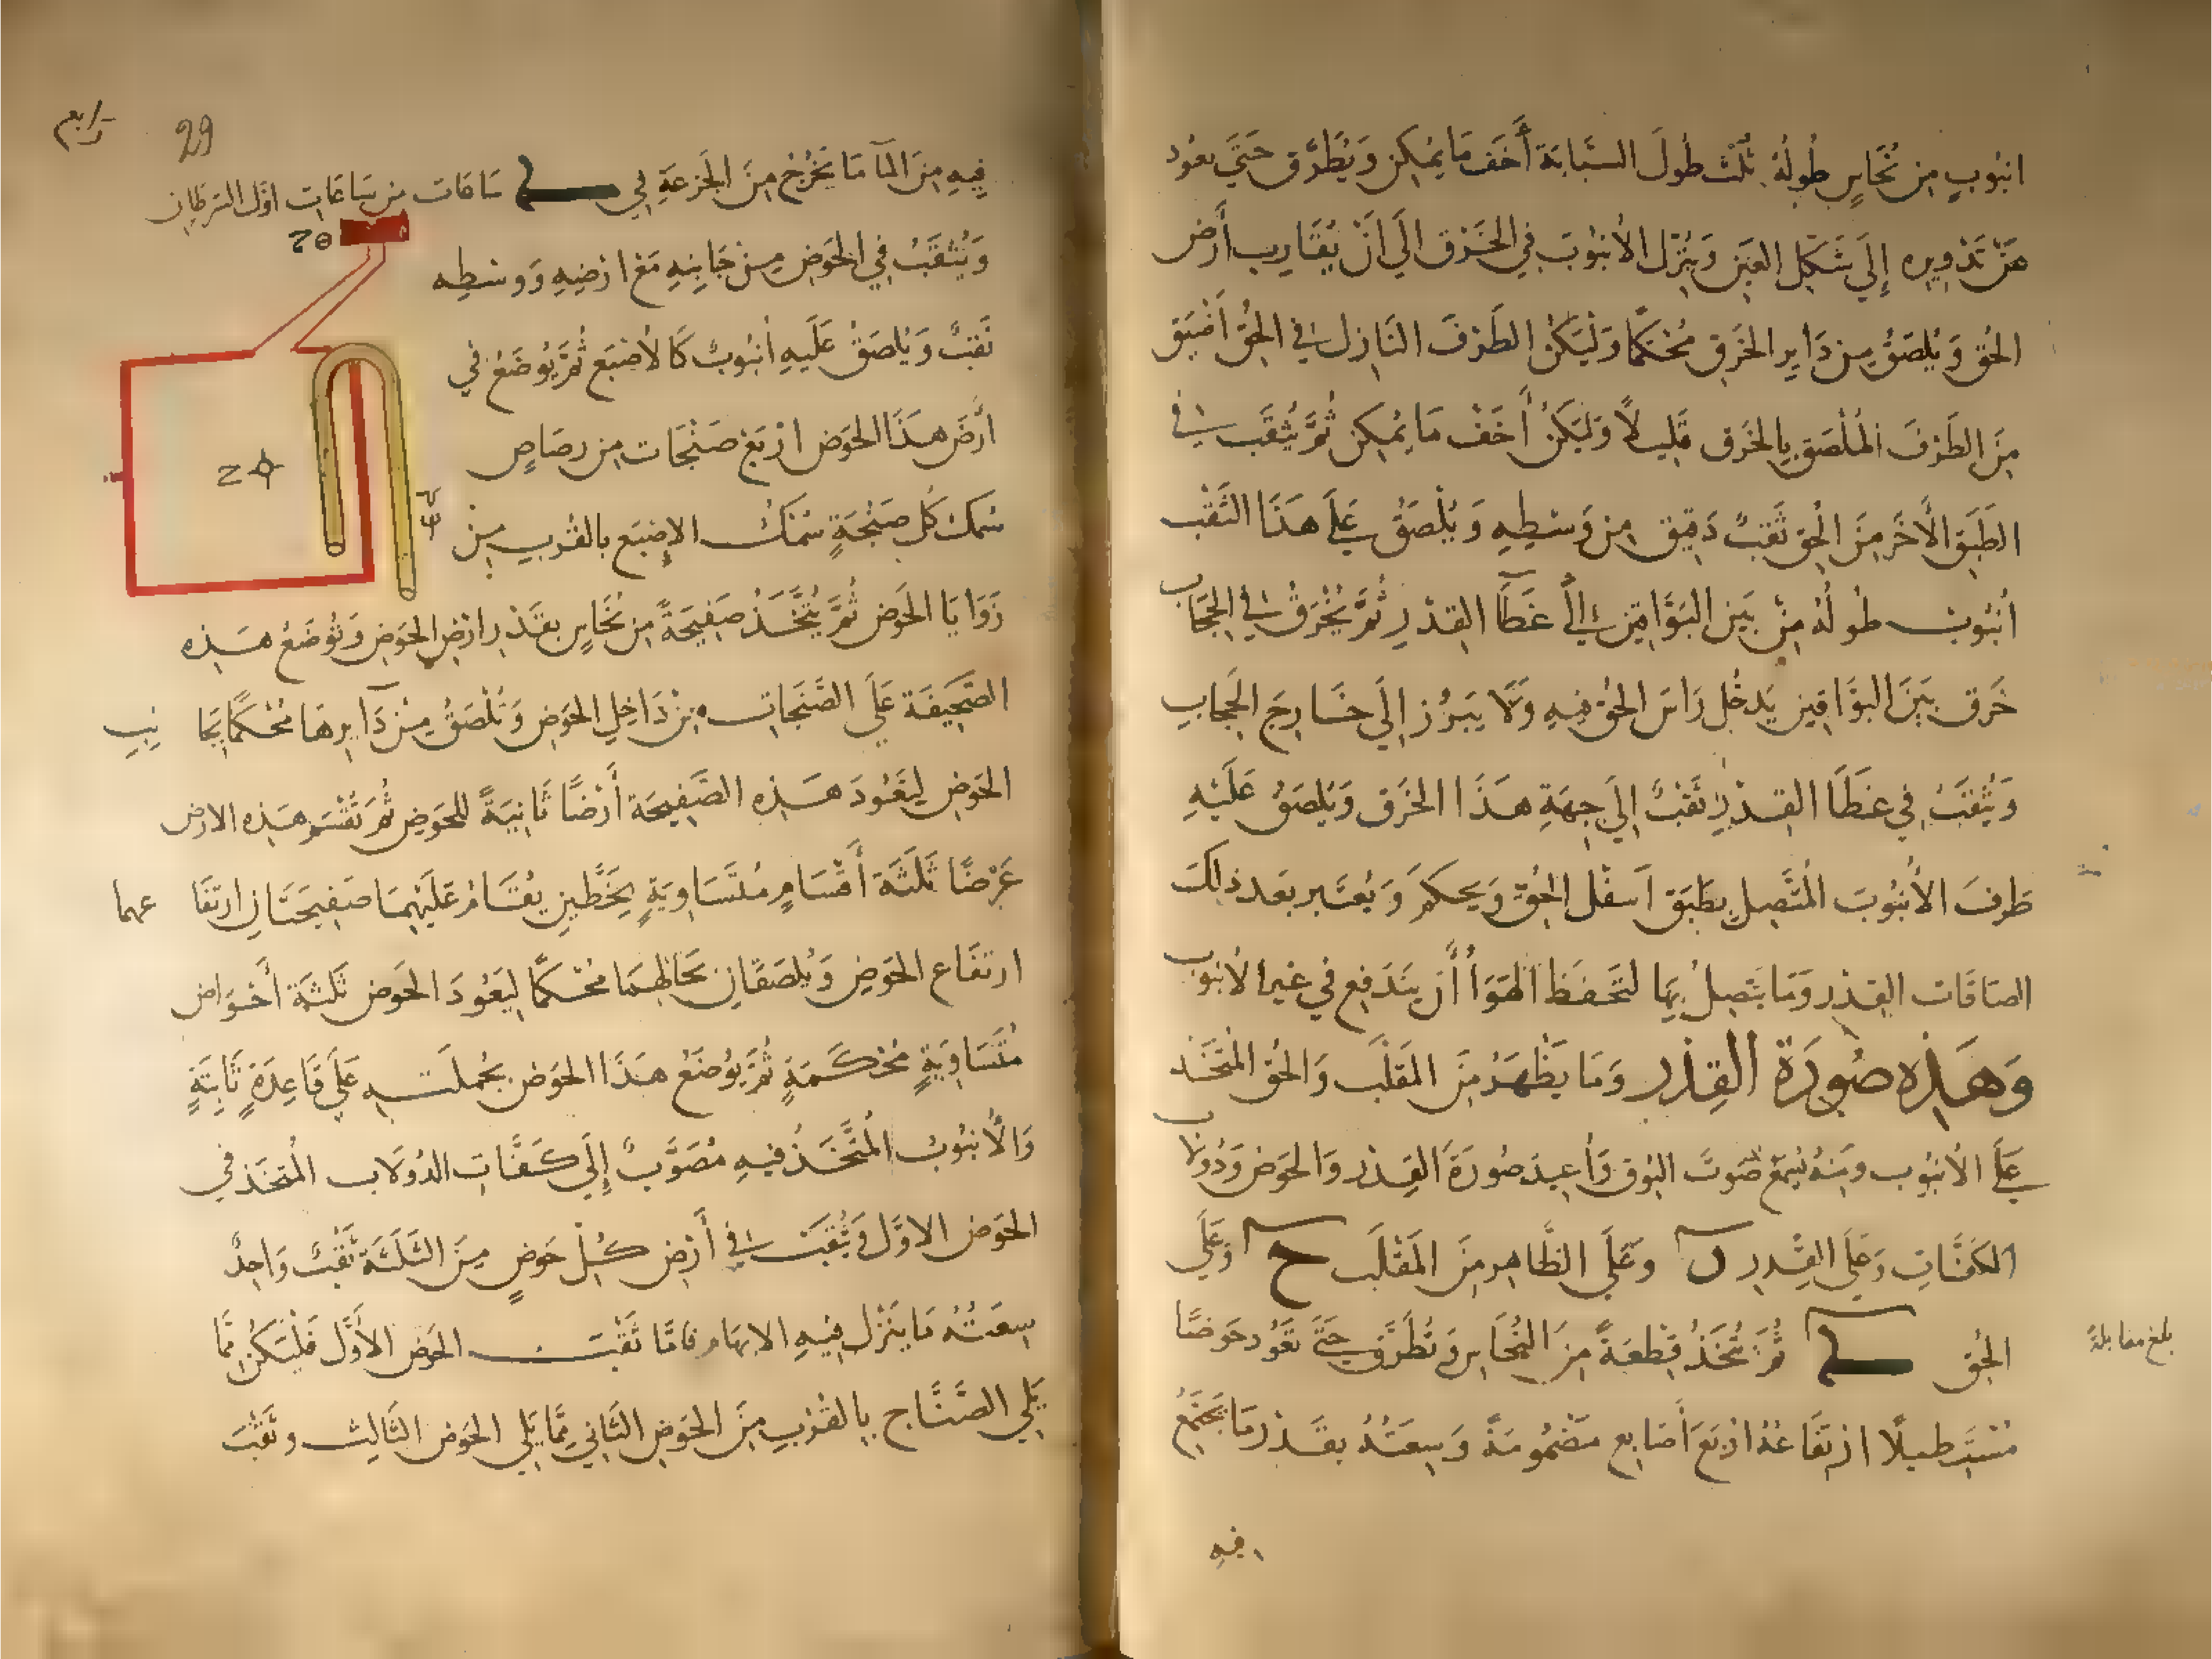 انبُوبٍ مِن نُحَاسٍ طُولُهُ ثُلْث طُولَ السَّبابَة أَخَف مَا يُمكِن وَيُطَرَّق حَتَّي يعُود
عَنْ تَدْوِيرِه إِلَي شَكْلِ العَيْن وَيُنْزَل الأنبُوبَ فِي الخَرْق الَي انْ يُقَارِب أَرْض
الحُق وَيُلصَقُ مِن دَايِرِ الخَرقِ مُحْكَمًا وَليَكُن الطَرَفَ النَازِل في الحُق أَضْيَق
مِنَ الطَرَفَ المُلْصَق بِالخَرق قَلِيلاً وَليَكُنْ أَخَفّ مَا يُمكِن ثُمَّ يُثقَب في
الطَبَق الأخَر مِنَ الحُق ثَقبٌ دَقِيق مِن وَسْطِهِ وَيُلْصَقُ عَلَي هَذَا الثَّقْب
أنبُوبٌ طُولُهُ مِنْ بَيْنِ البَوَّاقِيْن إلَي غَطَآ القِدْرِ ثُمَّ يُخْرَقُ في الحِجَابِ
خَرق بَيْنَ البوَّاقِين يَدخُل رَاسَ الحُق فِيهِ وَلَا يَبرُز إِلَي خَارِجَ الحِجَابِ
وَيُثقَبُ فِي غَطَا القِدْرِ ثَقْبٌ إِلَي جِهَةِ هَذَا الخَرق وَيُلصَقُ عَلَيْهِ
طَرفَ الأنبُوبَ المُتَّصِلِ بطَبَق اَسفل الحُقّ وَيحكَمُ وَيُعتَبر بَعد ذَلِكَ
الصَاقَات القِدْرِ وَمَا يَتَّصِلُ بِهَا لتَحفَظ الهَوَا أَن يَندَفِع فِي غَير الأنبُوب
وَهَذِه صُورَة القِدْر وَمَا يَظْهَرُ مِنَ المَقْلَب وَالحُق المُتَّخَذ
عَلَي الأنبُوب ومِنهُ يُسمَع صَوتَ البُوق وَأعِيدَ صُورَةَ القِدْر وَالحَوض وَدُولاب
الكَفَّاتِ وَعَلَي القِدرِ ں وَعَلَي الظَّاهِرِ مِنَ المَقْلَب ح وَعَلَي
الحُق ثُمَّ يُتَّخَذُ قِطعَةً مِنَ النُّحَاسِ وَتُطَرَّق حَتَّي تَعُود حَوضًا
مُسْتَطيلًا ارْتفَاعُهُ ارْبَعَ أَصَابِع مَضْمُومَةً وَسِعَتُهُ بقَدْر مَا يَجتَمِعُ
فيهِ
بلغ مقابلةً
رابع
29
فِيهِ مِنَ المَآ مَا يَخْرُجُ مِنَ الجَزعَةِ فِي سَاعَات مِن سَاعَاتِ اوَّل السَّرطان
وَيُثْقَبُ فِي الحَوضِ مِنْ جَانِبِهِ مَعْ ارْضِهِ وَوسْطِه
ثَقبٌ وَيُلصَقُ عَلَيهِ أُنبُوبٌ كَالأصْبَع ثُمَّ يُوضَعُ فِي
أرْضِ هَذَا الحَوض ارْبَعْ صَنْجَات مِن رصَاصٍ
سُمكَ كُل صَنْجَةٍ سُمْكُ الاِصْبَع بالقُربِ مِنْ
زَوَايَا الحَوض ثُمَّ يُتَّخَذُ صَفِيحَةً مِن نُحَاسٍ بقَدْرِ ارْضِ الحَوض وَتُوضَعُ هَذِه
الصَّحِيفَة عَلَي الصَّنجَاتِ مِنْ دَاخِلِ الحَوض وَتُلْصَقُ مِنْ دَآيرِهَا مُحْكَمًا بجَا نِبِ
الحَوض لِيَعُودَ هَذِه الصَّفِيحَة أَرْضًا ثَانِيَةً للحَوضِ ثُمَّ تُقْسَم هَذِه الارض
عَرْضًا ثَلَثَة أَقْسَامٍ مُتَسَاوِيَةٍ بِخَطَّينِ يُقَامُ عَلَيْهِمَا صَفِيحَتَانِ ارتفَا عهما
ارتفَاع الحَوضِ وَيُلصَقَانِ بحَالهِمَا مُحْكَمًا لِيَعُودَ الحَوض ثَلثَة أَحْوَاض
مُتَسَاوِيَةٍ مُحْكَمَةٍ ثُمَّ يُوضَعُ هَذَا الحَوض بجُملَتِهِ عَلَي قَاعِدَةٍ ثَابِتَةٍ
وَالأنبُوبُ المُتَّخَذُ فِيهِ مُصَوَّبٌ إِلَي كَفَّاتِ الدُولَاب المُتَّخَذ فِي
الحَوض الاوَّل وَيُثقَبُ في أَرْضِ كُلِّ حَوضٍ مِنَ الثَّلَثَة ثَقْبٌ وَاحِدٌ
سِعَتُهُ مَا يَنْزِل فِيهِ الابهَام فَامَّا ثَقْب الحَوض الأوَّل فَلْيَكُنْ مِمَّا
يَلِي الصَّنَّاج بِالقُرْبِ مِنَ الحَوض الثَّانِي مِمَّا يَلِي الحَوض الثَّالِث وثَقْبَ